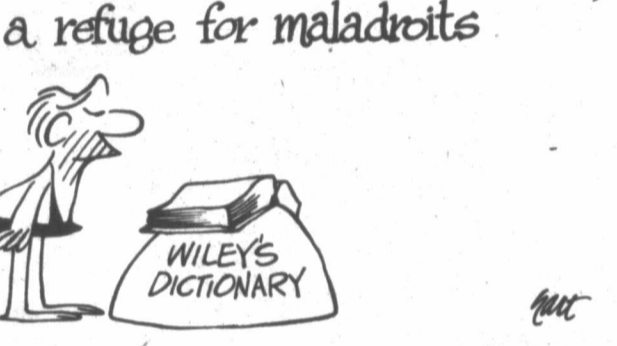 a refuge for maladroits
WILEY'S
DICTIONARY
hart